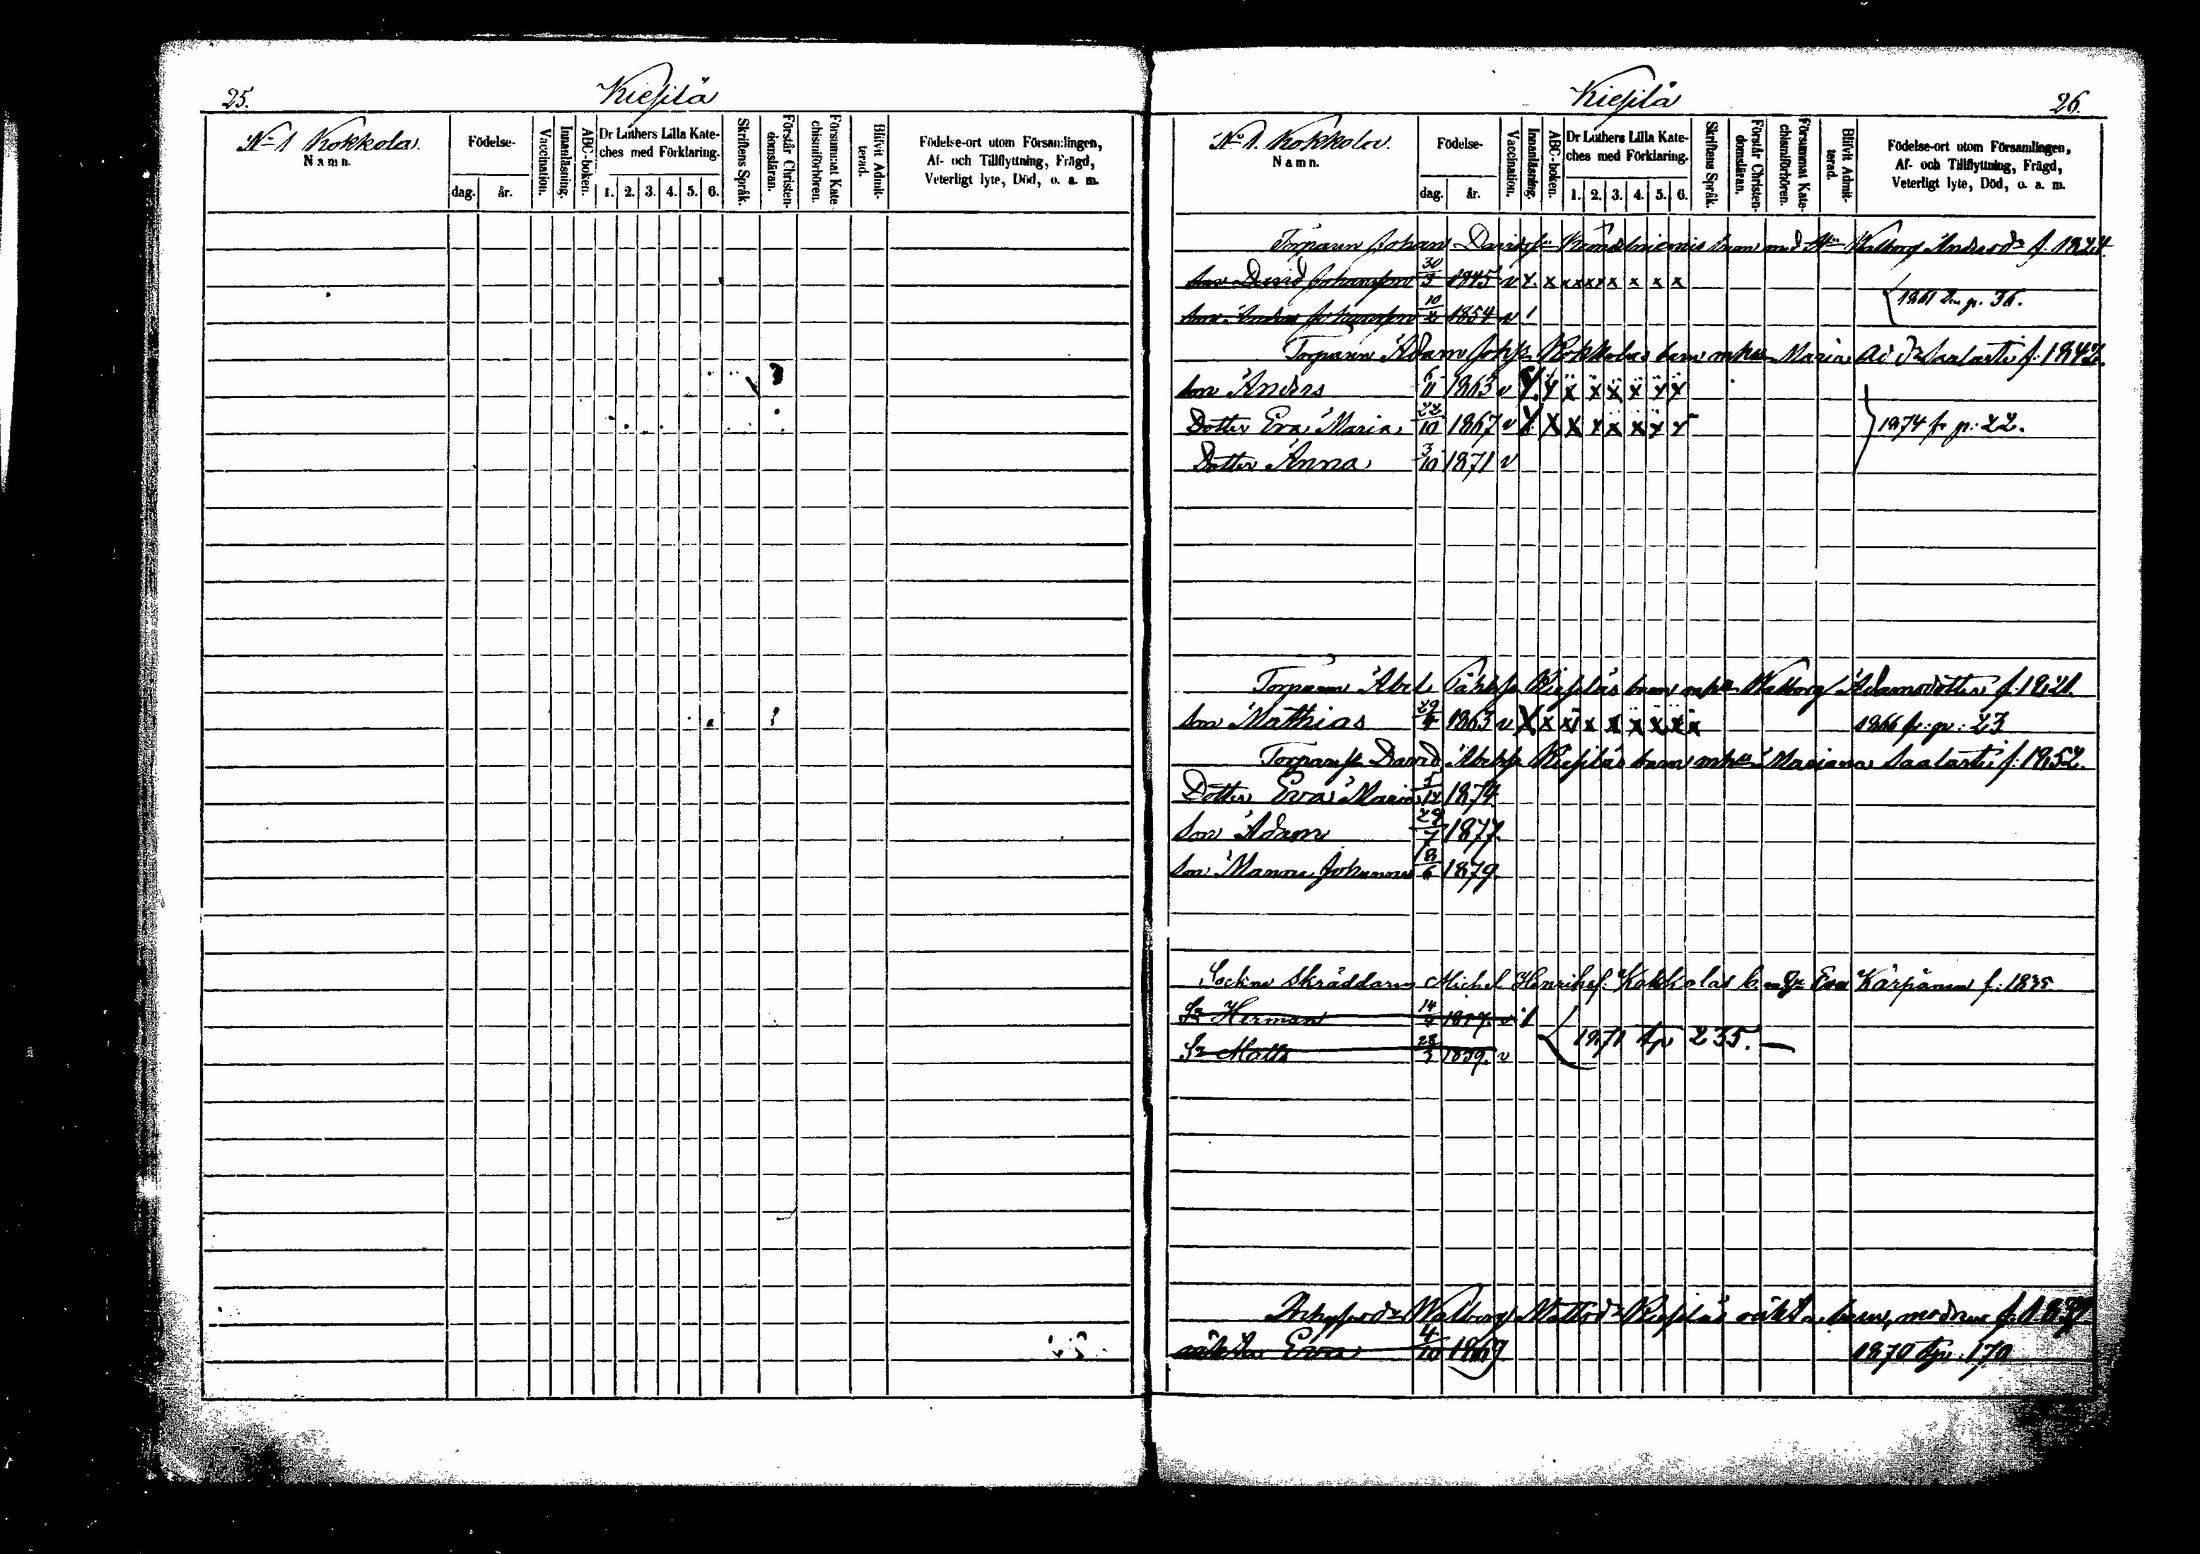 25.
Kiesilä
No 1 Kokkola.
Namn.
Födelse-
dag. år.
Vaccination.
Innanläsning.
ABC-boken.
Dr Luthers Lilla Kate-
ches med Förklaring.
1. 2. 3. 4. 5. 6.
Skriftens Språk.
Förstår Christen-
domsläran.
Försummat Kate-
chismiförhören.
Blifvit Admit-
terad.
Födelse-ort utom Församlingen,
Af- och Tillflyttning, Frägd,
Veterligt lyte, Död, o. a. m.
Kiesilä
26.
No 1. Kokkola.
Namn.
Födelse-
dag. år.
Vaccination.
Innanläsning.
ABC-boken.
Dr Luthers Lilla Kate-
ches med Förklaring.
1. 2. 3. 4. 5. 6.
Skriftens Språk.
Förstår Christen-
domsläran.
Försummat Kate-
chismiförhören.
Blifvit Admit-
terad.
Födelse-ort utom Församlingen,
Af- och Tillflyttning, Frägd,
Veterligt lyte, Död, o. a. m.
Torparen Johan Davidss. barn med Walborg Andersdr f. 1824.
Son David Johansson 30/3 1845 v x x x x x x x x x
1861 p. 36.
Son Johansson 10 1854 v
Torparen Adam Kokkolas barn Maria Saalasti f. 1842.
Son Anders 6/11 1863 v x x x x x x x x
Dotter Eva Maria 22/10 1867 v x x x x x x x x
1874 fr p: 22.
Dotter Anna 3/10 1871 v
Torparen Abel Kiesiläs barn Walborg Adamsdotter f. 1821
Son Mathias 29/4 1863 v x x x x x x x x x
1866 fr: p: 23
David Abelss. Kiesiläs barn Mariana Saalasti f: 1852.
Dotter Eva Maria 5/12 1874
Son Adam 28/7 1877.
Son Manne Johannes 18/6 1879.
Sockne skräddaren Michel Henrikss. Kokkolas b. Eva Kärpänen f: 1835
Sn Herman 14 1857. v
1871 tp 235.
Sn Matts 28/3 1859. v
Walborg Mattsdr Kiesiläs oäkta barn, modren f. 1837
oäkta Eva 4/10 1869
1870 tp: 170